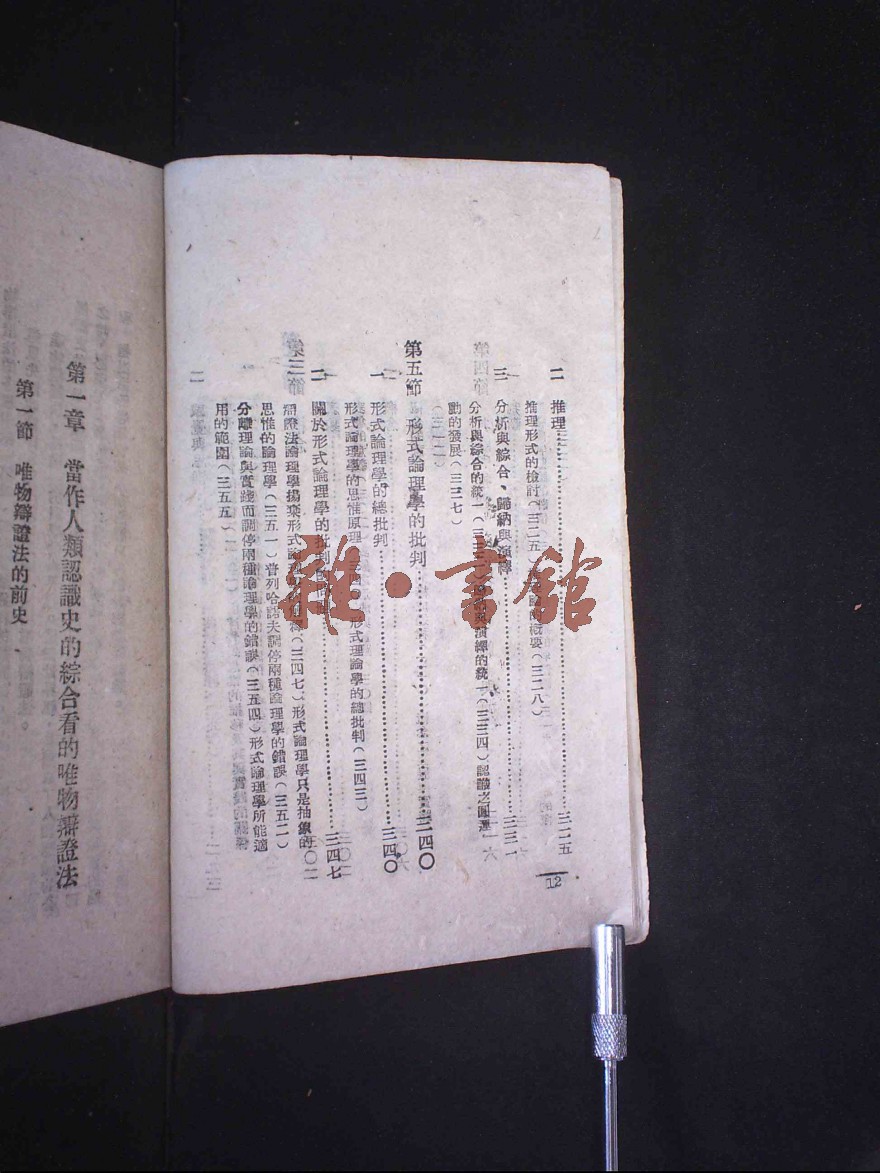 二 推理 三二五
推理形式的檢討(三二五 概要(三二八)
三 分析與綜合、歸納與演繹 三三一
分析與綜合的統一(三三 演繹的統一(三三四)認識之圓運
動的發展(三三七)
第五節 形式論理學的批判 三四〇
一 形式論理學的總批判 三四〇
形式論理學的思惟原理 形式理論學的總批判(三四三)
二 關於形式論理學的批判 三四七
辯證法論理學揚棄形式論理 (三四七)形式論理學只是抽象的
思惟的論理學(三五一)普列哈諾夫調停兩種論理學的錯誤(三五二)
分離理論與實踐而調停兩種論理學的錯誤(三五四)形式論理學所能適
用的範圍(三五五)
12
雜·書館
第一章 當作人類認識史的綜合看的唯物辯證法
第一節 唯物辯證法的前史